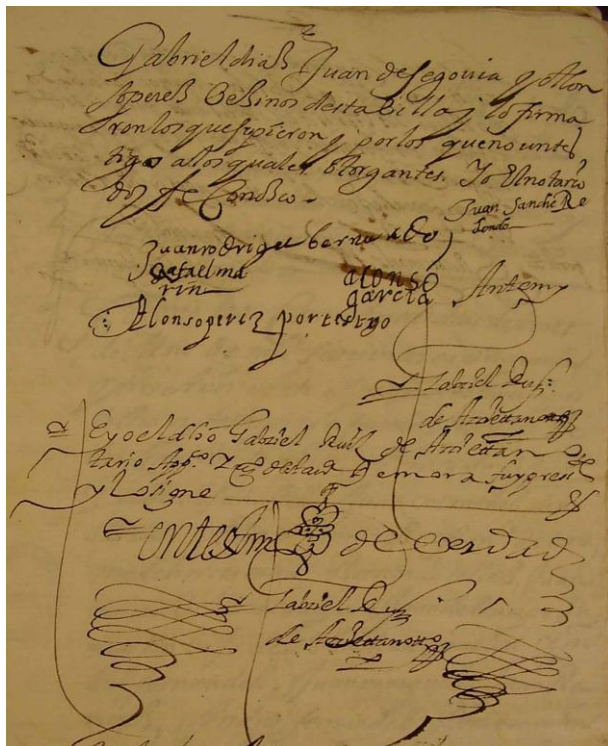 Gabriel dias Juan de segovia y Alon
so peres Besinos desta Billa y lo firma
ron los que supieron y por los que no un tes
tigo a los quales otorgantes. Yo El notario
doy fe Conosco.
Juan Sanches Re
dondo
Juan rodrigue bernardo
Rafael ma
rin
alonso
garcia
Antemy
Alonso perez por testigo
Gabriel Ruis
de Azriettanotto
E yo el dho Gabriel Ruis de Azriettan
tario App.co de la ciud de mora fuy presen
y lo signe
En testim de verdad
Gabriel Ruis
de Azriettanotto